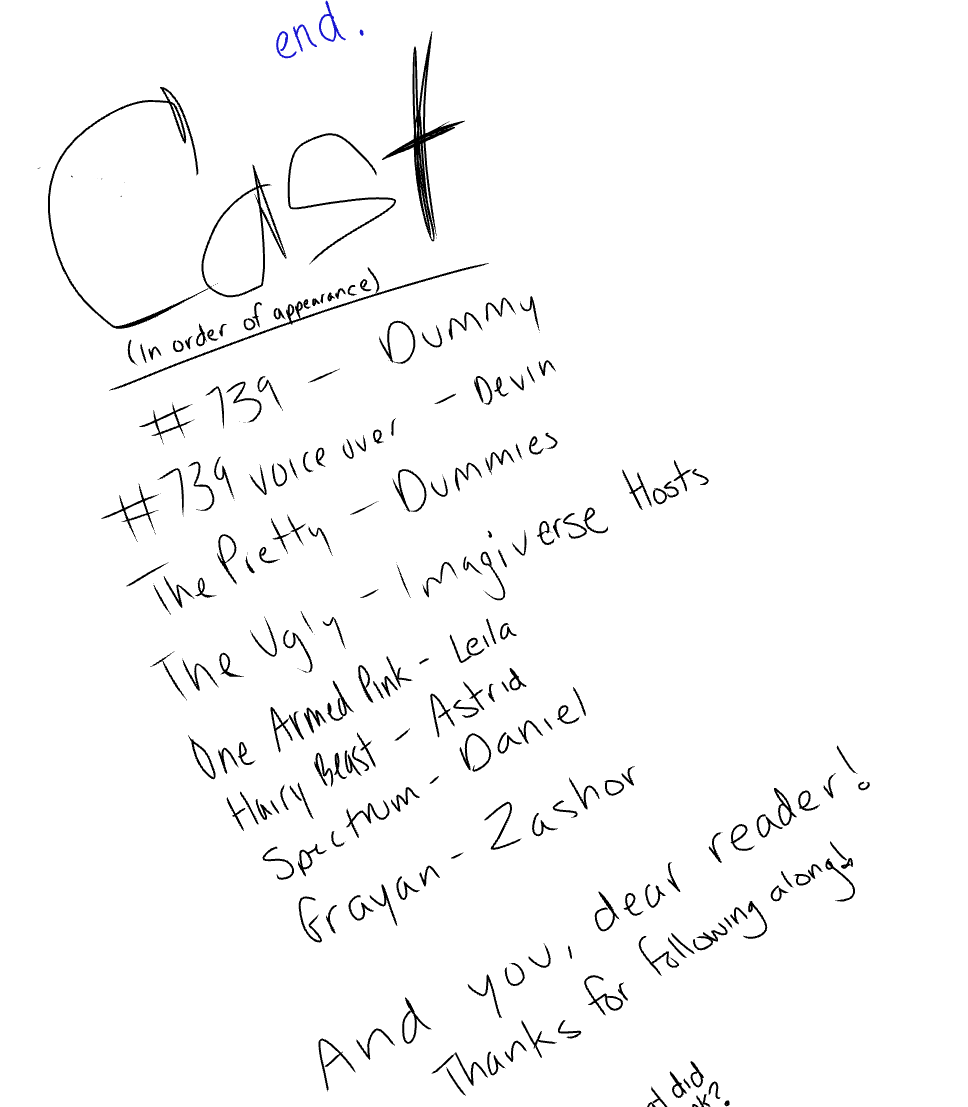 end.
Cast
(In order of appearance)
#739 - Dummy
#739 voice over - Devin
The Pretty - Dummies
The Ugly - Imagiverse Hosts
One Armed Pink - Leila
Hairy Beast - Astrid
Spectrum - Daniel
Grayan - Zashor
And you, dear reader!
Thanks for following along!
did